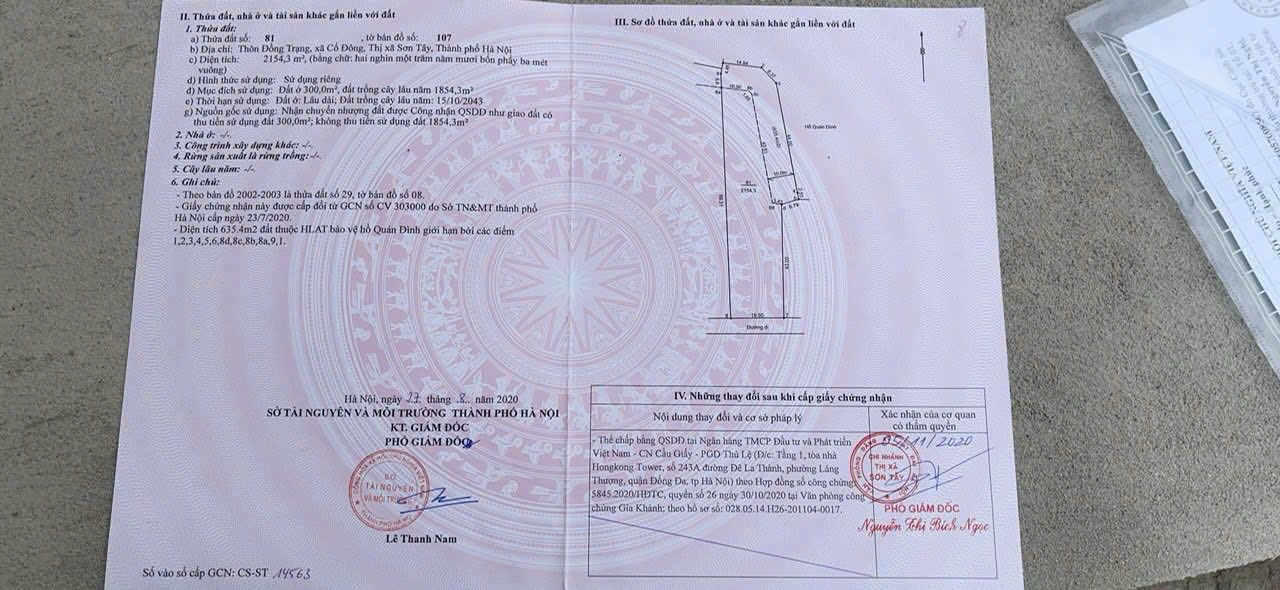 II. Thửa đất, nhà ở và tài sản khác gắn liền với đất
1. Thửa đất:
a) Thửa đất số: 81 , tờ bản đồ số: 107
b) Địa chỉ: Thôn Đồng Trạng, xã Cổ Đông, Thị xã Sơn Tây, Thành phố Hà Nội
c) Diện tích: 2154,3 m², (bằng chữ: hai nghìn một trăm năm mươi bốn phẩy ba mét
vuông)
d) Hình thức sử dụng: Sử dụng riêng
đ) Mục đích sử dụng: Đất ở 300,0m², đất trồng cây lâu năm 1854,3m²
e) Thời hạn sử dụng: Đất ở: Lâu dài; Đất trồng cây lâu năm: 15/10/2043
g) Nguồn gốc sử dụng: Nhận chuyển nhượng đất được Công nhận QSDĐ như giao đất có
thu tiền sử dụng đất 300,0m²; không thu tiền sử dụng đất 1854,3m²
2. Nhà ở: -/-.
3. Công trình xây dựng khác: -/-.
4. Rừng sản xuất là rừng trồng: -/-.
5. Cây lâu năm: -/-.
6. Ghi chú:
- Theo bản đồ 2002-2003 là thửa đất số 29, tờ bản đồ số 08.
- Giấy chứng nhận này được cấp đổi từ GCN số CV 303000 do Sở TN&MT thành phố
Hà Nội cấp ngày 23/7/2020.
- Diện tích 635.4m2 đất thuộc HLAT bảo vệ hồ Quán Đình giới hạn bởi các điểm
1,2,3,4,5,6,8d,8c,8b,8a,9,1.
Hà Nội, ngày 27 tháng 8 năm 2020
SỞ TÀI NGUYÊN VÀ MÔI TRƯỜNG THÀNH PHỐ HÀ NỘI
KT. GIÁM ĐỐC
PHÓ GIÁM ĐỐC
SỞ
TÀI NGUYÊN
VÀ MÔI TRƯỜNG
Lê Thanh Nam
Số vào sổ cấp GCN: CS-ST 14563
III. Sơ đồ thửa đất, nhà ở và tài sản khác gắn liền với đất
B
14.84
10.50
Hồ Quán Đình
10.0m
81
2154,3
6.79
43.00
19.50
Đường đi
IV. Những thay đổi sau khi cấp giấy chứng nhận
Nội dung thay đổi và cơ sở pháp lý
Xác nhận của cơ quan
có thẩm quyền
- Thế chấp bằng QSDĐ tại Ngân hàng TMCP Đầu tư và Phát triển
Việt Nam - CN Cầu Giấy - PGD Thủ Lệ (Đ/c: Tầng 1, tòa nhà
Hongkong Tower, số 243A đường Đê La Thành, phường Láng
Thượng, quận Đống Đa, tp Hà Nội) theo Hợp đồng số công chứng:
5845.2020/HĐTC, quyển số 26 ngày 30/10/2020 tại Văn phòng công
chứng Gia Khánh; theo hồ sơ số: 028.05.14.H26-201104-0017.
05/11/2020
CHI NHÁNH
THỊ XÃ
SƠN TÂY
PHÓ GIÁM ĐỐC
Nguyễn Thị Bích Ngọc